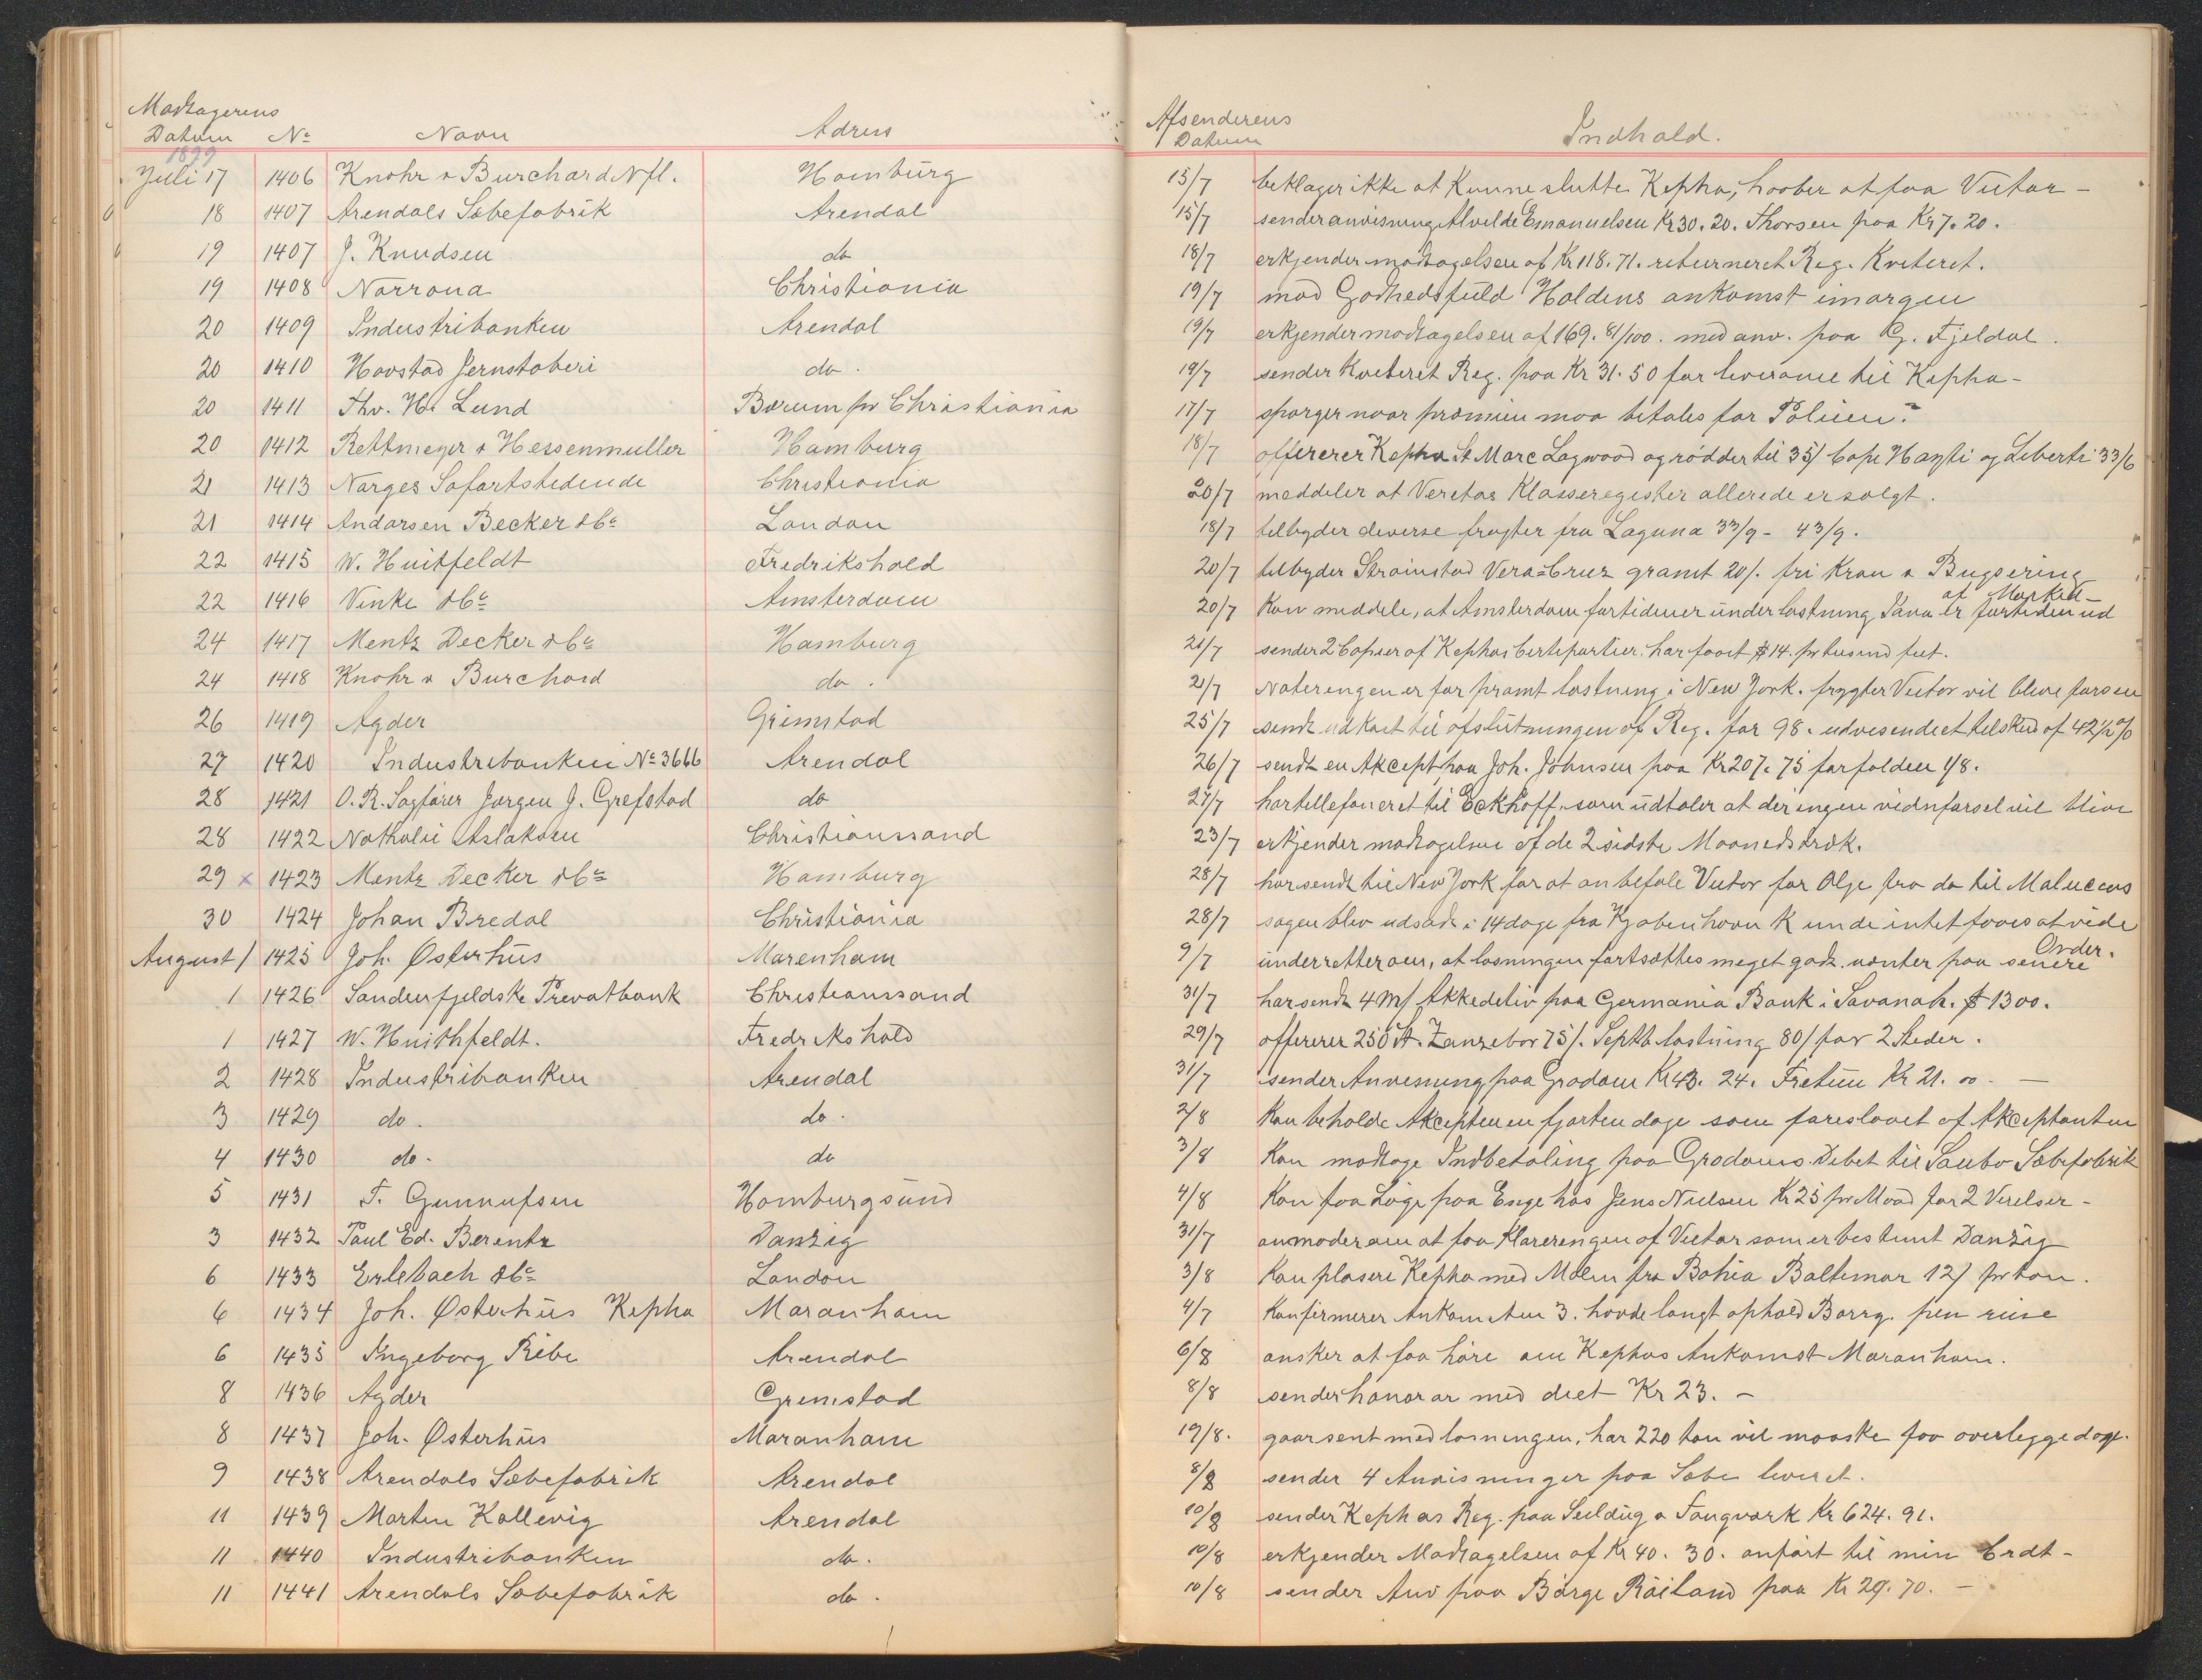 Modtagerens
Datum No Navn Adress
1899
Juli 17 1406 Knohr & Burchard Nfl. Hamburg
18 1407 Arendals Sæbefabrik Arendal
19 1407 J. Knudsen do
19 1408 Norrøna Christiania
20 1409 Industribanken Arendal
20 1410 Hovstad Jernstøberi do.
20 1411 Thv. H. Lund Bærum pr Christiania
20 1412 Rettmeyer & Hessenmuller Hamburg
21 1413 Norges Søfartstidende Christiania
21 1414 Andorsen Becker & Co London
22 1415 W. Huitfeldt Fredrikshald
22 1416 Vinke & Co Amsterdam
24 1417 Mentz Decker & Co Hamburg
24 1418 Knohr & Burchard do.
26 1419 Agder Grimstad
27 1420 Industribanken No 3666 Arendal
28 1421 O. R. Sagfører Jørgen J. Grefstad do
28 1422 Nathalie Aslaksen Christianssand
29 x 1423 Mentz Decker & Co Hamburg
30 1424 Johan Bredal Christiania
August 1 1425 Joh. Østerhüs Marenham
1 1426 Søndenfjeldske Privatbank Christianssand
1 1427 W. Huithfeldt. Fredrikshald
2 1428 Industribanken Arendal
3 1429 do. do.
4 1430 do. do
5 1431 T. Gunnufsen Homburgsund
3 1432 Paul Ed. Berentz Danzig
6 1433 Erlebach & Co London
6 1434 Joh. Østerhüs Kepha Maranham
6 1435 Ingeborg Ribe Arendal
8 1436 Agder Grimstad
8 1437 Joh. Østerhüs Maranham
9 1438 Arendals Sæbefabrik Arendal
11 1439 Morten Kallevig Arendal
11 1440 Industribanken do.
11 1441 Arendals Sæbefabrik do.
Afsenderens
Datum Indhold.
15/7 beklager ikke at kunne slutte Kepha, haaber at faa Victor -
15/7 sender anvisning Alvilde Emanuelsen Kr 30. 20. Thorsen paa Kr 7. 20.
18/7 erkjender modtagelsen af Kr 118. 71. returneret Reg. Kviteret.
19/7 mod Godhedsfuld Haldens ankomst imorgen
19/7 erkjender modtagelsen af 169. 81/100. med anv. paa G. Fjeldal.
19/7 sender kviteret Reg. paa Kr 31. 50 for leverance til Kepha -
17/7 spørger naar præmien maa betales for Policen?
18/7 offererer Kepha St Marc Logwood og rødder til 35/ Cape Hayti og Liberti 33/6
20/7 meddeler at Veritas Klasseregister allerede er solgt.
18/7 tilbyder diverse fragter fra Laguna 33/9 - 43/9.
20/7 tilbyder Strømstad Vera-Cruz gramt 20/. fri Kran & Bugsering
20/7 Kan meddele, at Amsterdam fortiden er ünder lastning Java er fortiden ud
af Market -
21/7 sender 2 Copier af Kephas Certepartier. har faaet $ 14. pr tusind feet.
21/7 Noteringen er for pramt lastning i New York. frygter Victor vil blive forsen
25/7 sendt udkast til afslutningen af Reg. for 98. udvisende et tilskud af 42 1/2 %
26/7 sendt en Akcept paa Joh. Johnsen paa Kr 207. 75 forfalden 1/8.
27/7 har tellefoneret til Eckhoff, som üdtaler at der ingen vidnførsel vil blive
23/7 erkjender modtagelsen af de 2 sidste Maanedstræk.
28/7 har sendt til New York for at anbefale Victor for Olje fra do til Maluccas
28/7 sagen blev udsadt i 14 dage fra Kjøbenhavn K unde intet faaes at vide
9/7 ünderretter om, at losningen fortsættes meget godt. venter paa senere
Order.
31/7 har sendt 4 m/ Akkreditiv paa Germania Bank i Savanah. $ 1300.
29/7 offererer 250 St. Zanzebar 75/. Septb lastning 80/ for 2 Steder.
31/7 sender Anvisning paa Grødøm Kr 43. 24. Kr 21. 00 - —
2/8 Kan beholde Akcepten en fjorten dage som foreslaaet af Akceptanten
3/8 Kan modtage Indbetaling paa Grødøms Debet til Sæbefabrik
4/8 Kan faa Loge paa Enge hos Jens Nielsen Kr 25 pr Maad for 2 Værelser -
31/7 anmoder om at faa Klareringen af Victor som er bestemt Danzig
3/8 Kan plasere Kepha med Malm fra Bahia Baltimor 12/ pr ton.
4/7 Konfirmerer Ankomsten 3. havde langt ophold Barry. pen reise
6/8 ønsker at faa høre om Kephas Ankomst Maranham.
8/8 sender honorar med deet Kr 23. -
19/8. gaar sent med losningen, har 220 ton vil maaske faa overliggedage.
8/8 sender 4 Anvisninger paa Sæbe leveret.
10/8 sender Kephas Reg. paa Seildüg & Taugværk Kr 624. 91.
10/8 erkjender Modtagelsen af Kr 40. 30. anført til min Crdt -
10/8 sender Anv paa Börge Röiland paa Kr 29. 70. -